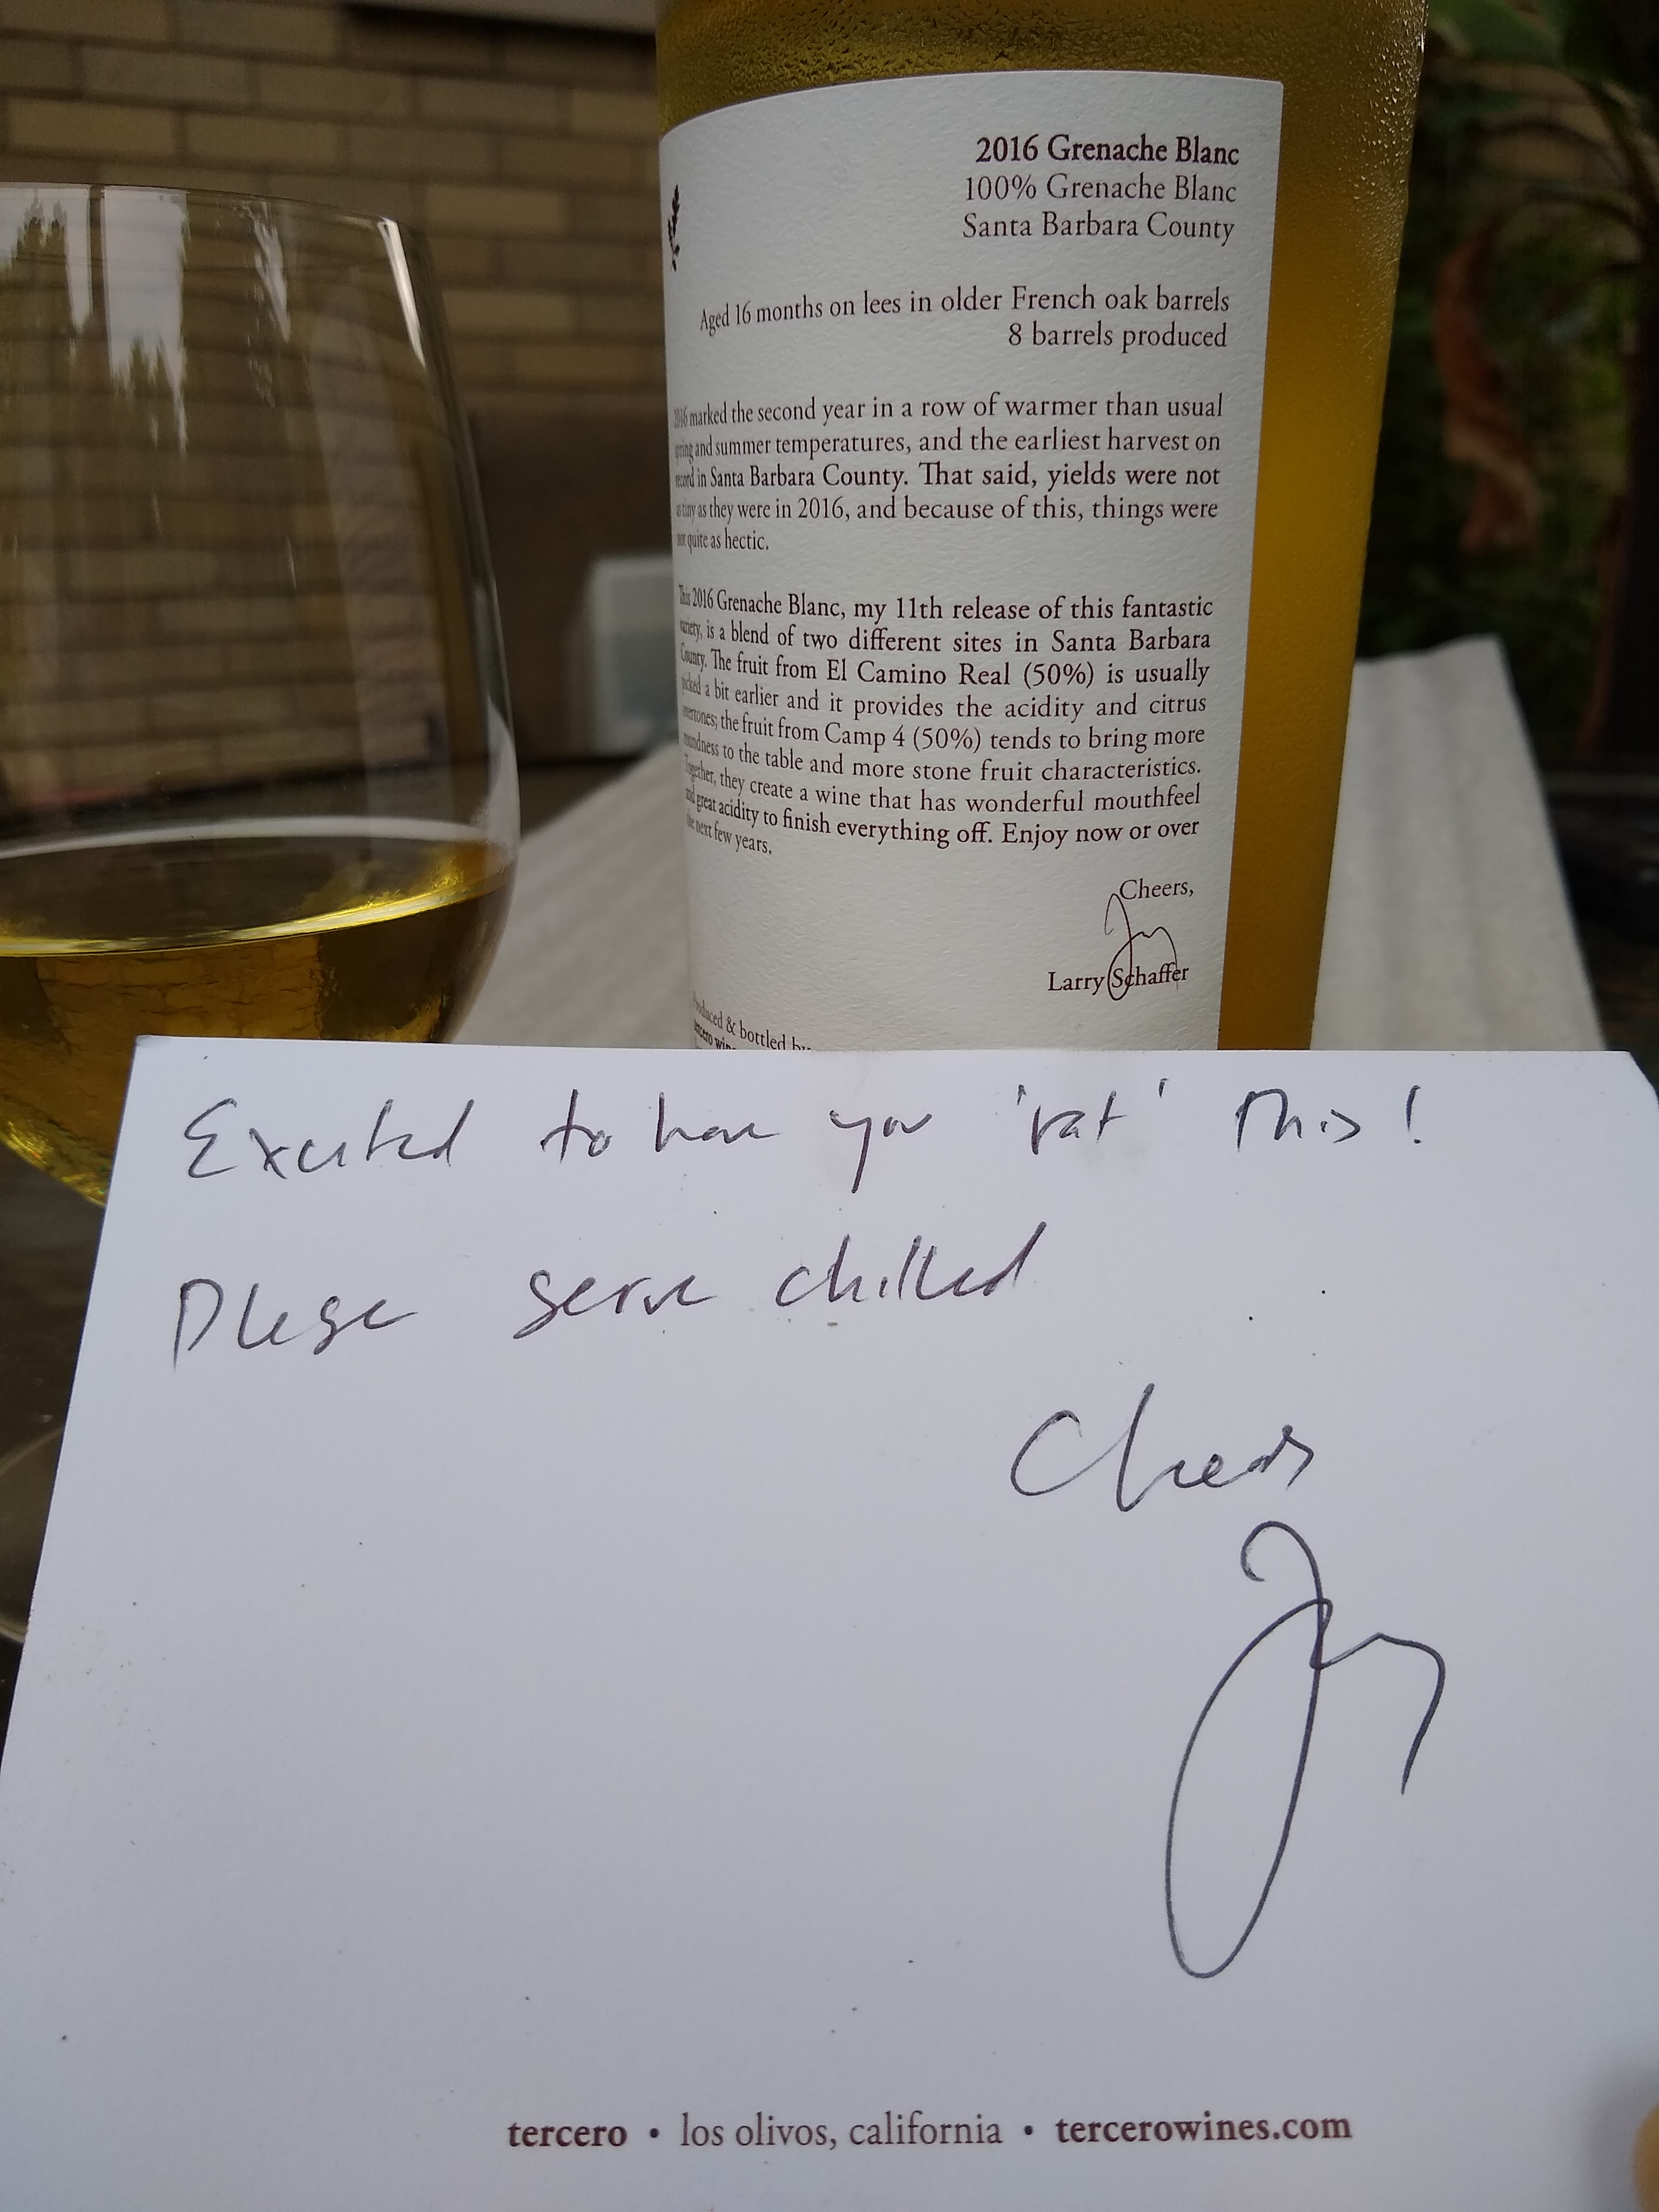 2016 Grenache Blanc
100% Grenache Blanc
Santa Barbara County
Aged 16 months on lees in older French oak barrels
8 barrels produced
2016 marked the second year in a row of warmer than usual
spring and summer temperatures, and the earliest harvest on
record in Santa Barbara County. That said, yields were not
as tiny as they were in 2016, and because of this, things were
not quite as hectic.
This 2016 Grenache Blanc, my 11th release of this fantastic
variety, is a blend of two different sites in Santa Barbara
County. The fruit from El Camino Real (50%) is usually
picked a bit earlier and it provides the acidity and citrus
overtones; the fruit from Camp 4 (50%) tends to bring more
roundness to the table and more stone fruit characteristics.
Together, they create a wine that has wonderful mouthfeel
and great acidity to finish everything off. Enjoy now or over
the next few years.
Cheers,
Larry Schaffer
Produced & bottled by
tercero
Excited to have you 'rat' this!
Please serve chilled
Cheers
tercero • los olivos, california • tercerowines.com